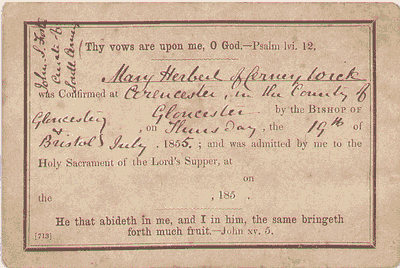 John S.
Curate of
Thy vows are upon me, O God.—Psalm lvi. 12.
Mary Herbert of Cerney Wick
was Confirmed at Cirencester, in the County of
Gloucester by the BISHOP OF
Gloucester & Bristol, on Thursday, the 19th of
July, 1855.; and was admitted by me to the
Holy Sacrament of the Lord's Supper, at
on
the , 185 .
He that abideth in me, and I in him, the same bringeth
forth much fruit.—John xv. 5.
[713]